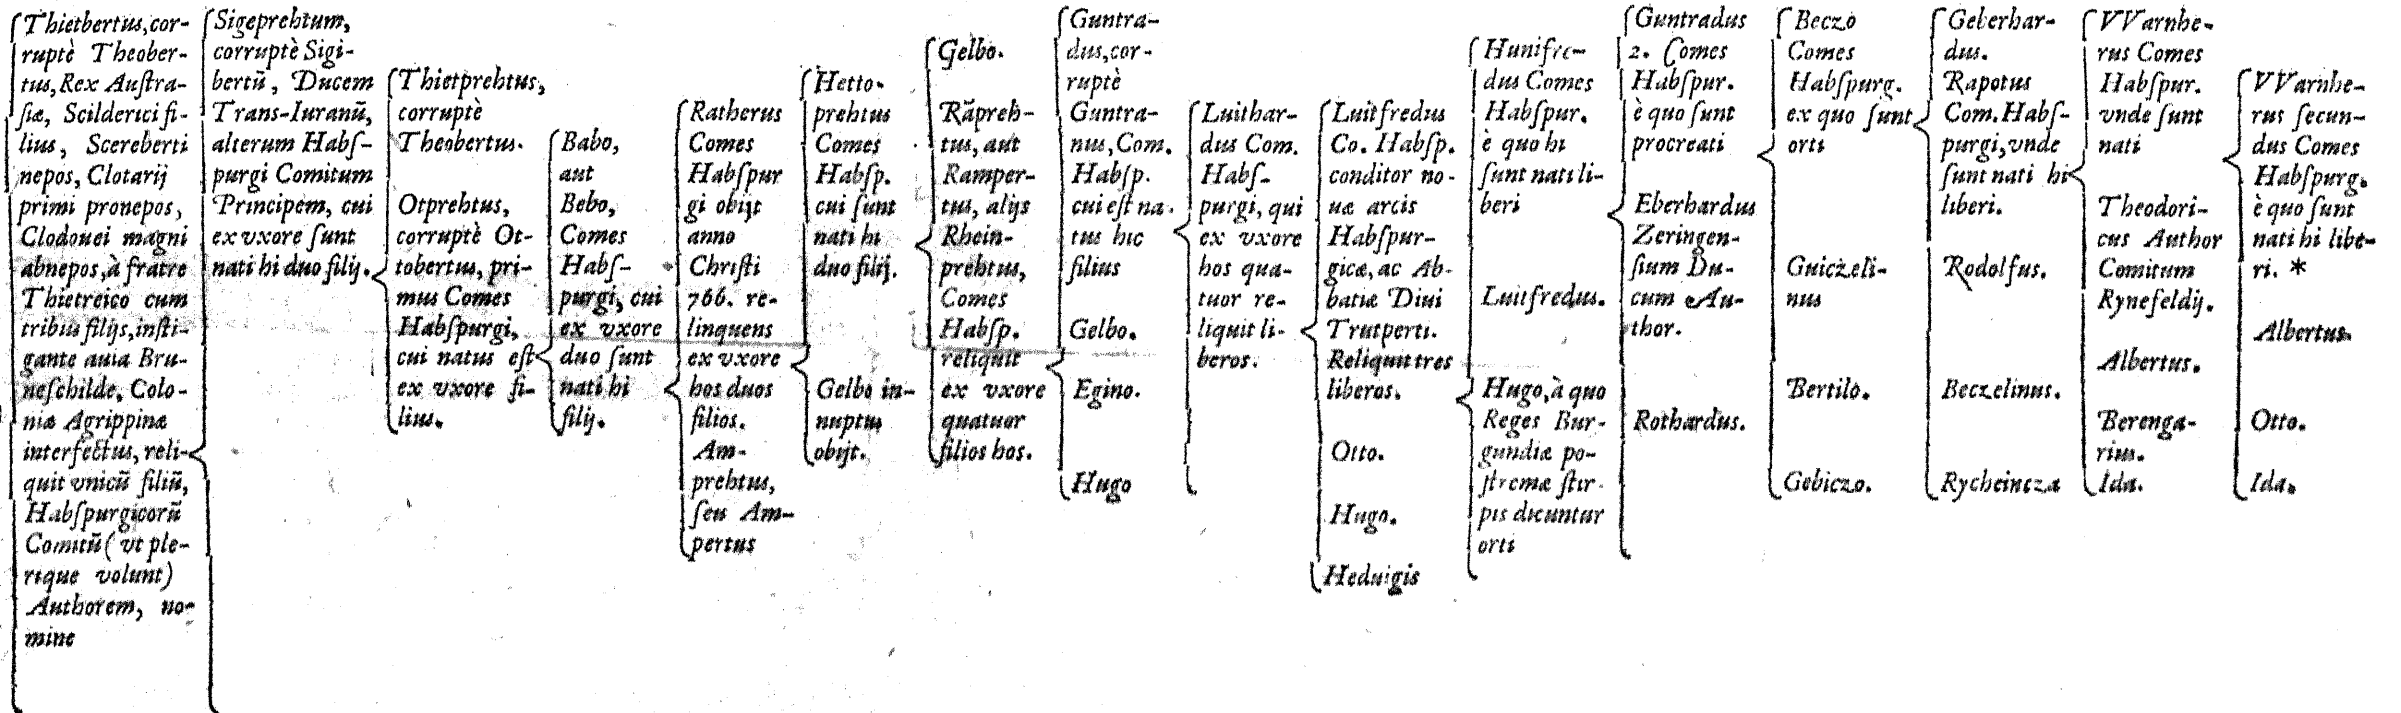 Thietbertus,cor-
ruptè Theober-
tus,Rex Auſtra-
ſiæ, Scilderici fi-
lius, Scereberti
nepos, Clotarij
primi pronepos,
Clodouei magni
abnepos,à fratre
Thietreico cum
tribus filijs,inſti-
gante auia Bru-
neſchilde, Colo-
niæ Agrippinæ
interfectus, reli-
quit vnicũ filiũ,
Habſpurgicorũ
Comitũ( vt ple-
rique volunt)
Authorem, no-
mine
Sigeprehtum,
corruptè Sigi-
bertũ, Ducem
Trans-Iuranũ,
alterum Habſ-
purgi Comitum
Principem, cui
ex vxore ſunt
nati hi duo filij.
Thietprehtus,
corruptè
Theobertus.
Otprehtus,
corruptè Ot-
tobertus, pri-
mus Comes
Habſpurgi,
cui natus eſt
ex vxore fi-
lius.
Babo,
aut
Bebo,
Comes
Habſ-
purgi, cui
ex vxore
duo ſunt
nati hi
filij.
Ratherus
Comes
Habſpur
gi obijt
anno
Chriſti
766. re-
linquens
ex vxore
hos duos
filios.
Am-
prehtus,
ſeu Am-
pertus
Hetto-
prehtus
Comes
Habſp.
cui ſunt
nati hi
duo filij.
Gelbo in-
nuptus
obijt.
Gelbo.
Rãpreh-
tus, aut
Ramper-
tus, alijs
Rhein-
prehtus,
Comes
Habſp.
reliquit
ex vxore
quatuor
filios hos.
Guntra-
dus,cor-
ruptè
Guntra-
nus, Com.
Habſp.
cui eſt na-
tus hic
filius
Gelbo.
Egino.
Hugo
Luithar-
dus Com.
Habſ-
purgi, qui
ex vxore
hos qua-
tuor re-
liquit li-
beros.
Luitfredus
Co. Habſp.
conditor no-
uæ arcis
Habſpur-
gicæ, ac Ab-
batiæ Diui
Trutperti.
Reliquit tres
liberos.
Otto.
Hugo.
Heduigis
Hunifre-
dus Comes
Habſpur.
è quo hi
ſunt nati li-
beri
Luitfredus.
Hugo, à quo
Reges Bur-
gundiæ po-
ſtremæ ſtir-
pis dicuntur
orti
Guntradus
2. Comes
Habſpur.
è quo ſunt
procreati
Eberhardus
Zeringen-
ſium Du-
cum Au-
thor.
Rothardus.
Beczo
Comes
Habſpurg.
ex quo ſunt
orti
Guiczeli-
nus
Bertilo.
Gebiczo.
Geberhar-
dus.
Rapotus
Com. Habſ-
purgi, vnde
ſunt nati hi
liberi.
Rodolfus.
Beczelinus.
Rycheincza
VVarnhe-
rus Comes
Habſpur.
vnde ſunt
nati
Theodori-
cus Author
Comitum
Rynefeldij.
Albertus.
Berenga-
rius.
Ida.
VVarnhe-
rus ſecun-
dus Comes
Habſpurg.
è quo ſunt
nati hi libe-
ri. *
Albertus.
Otto.
Ida.